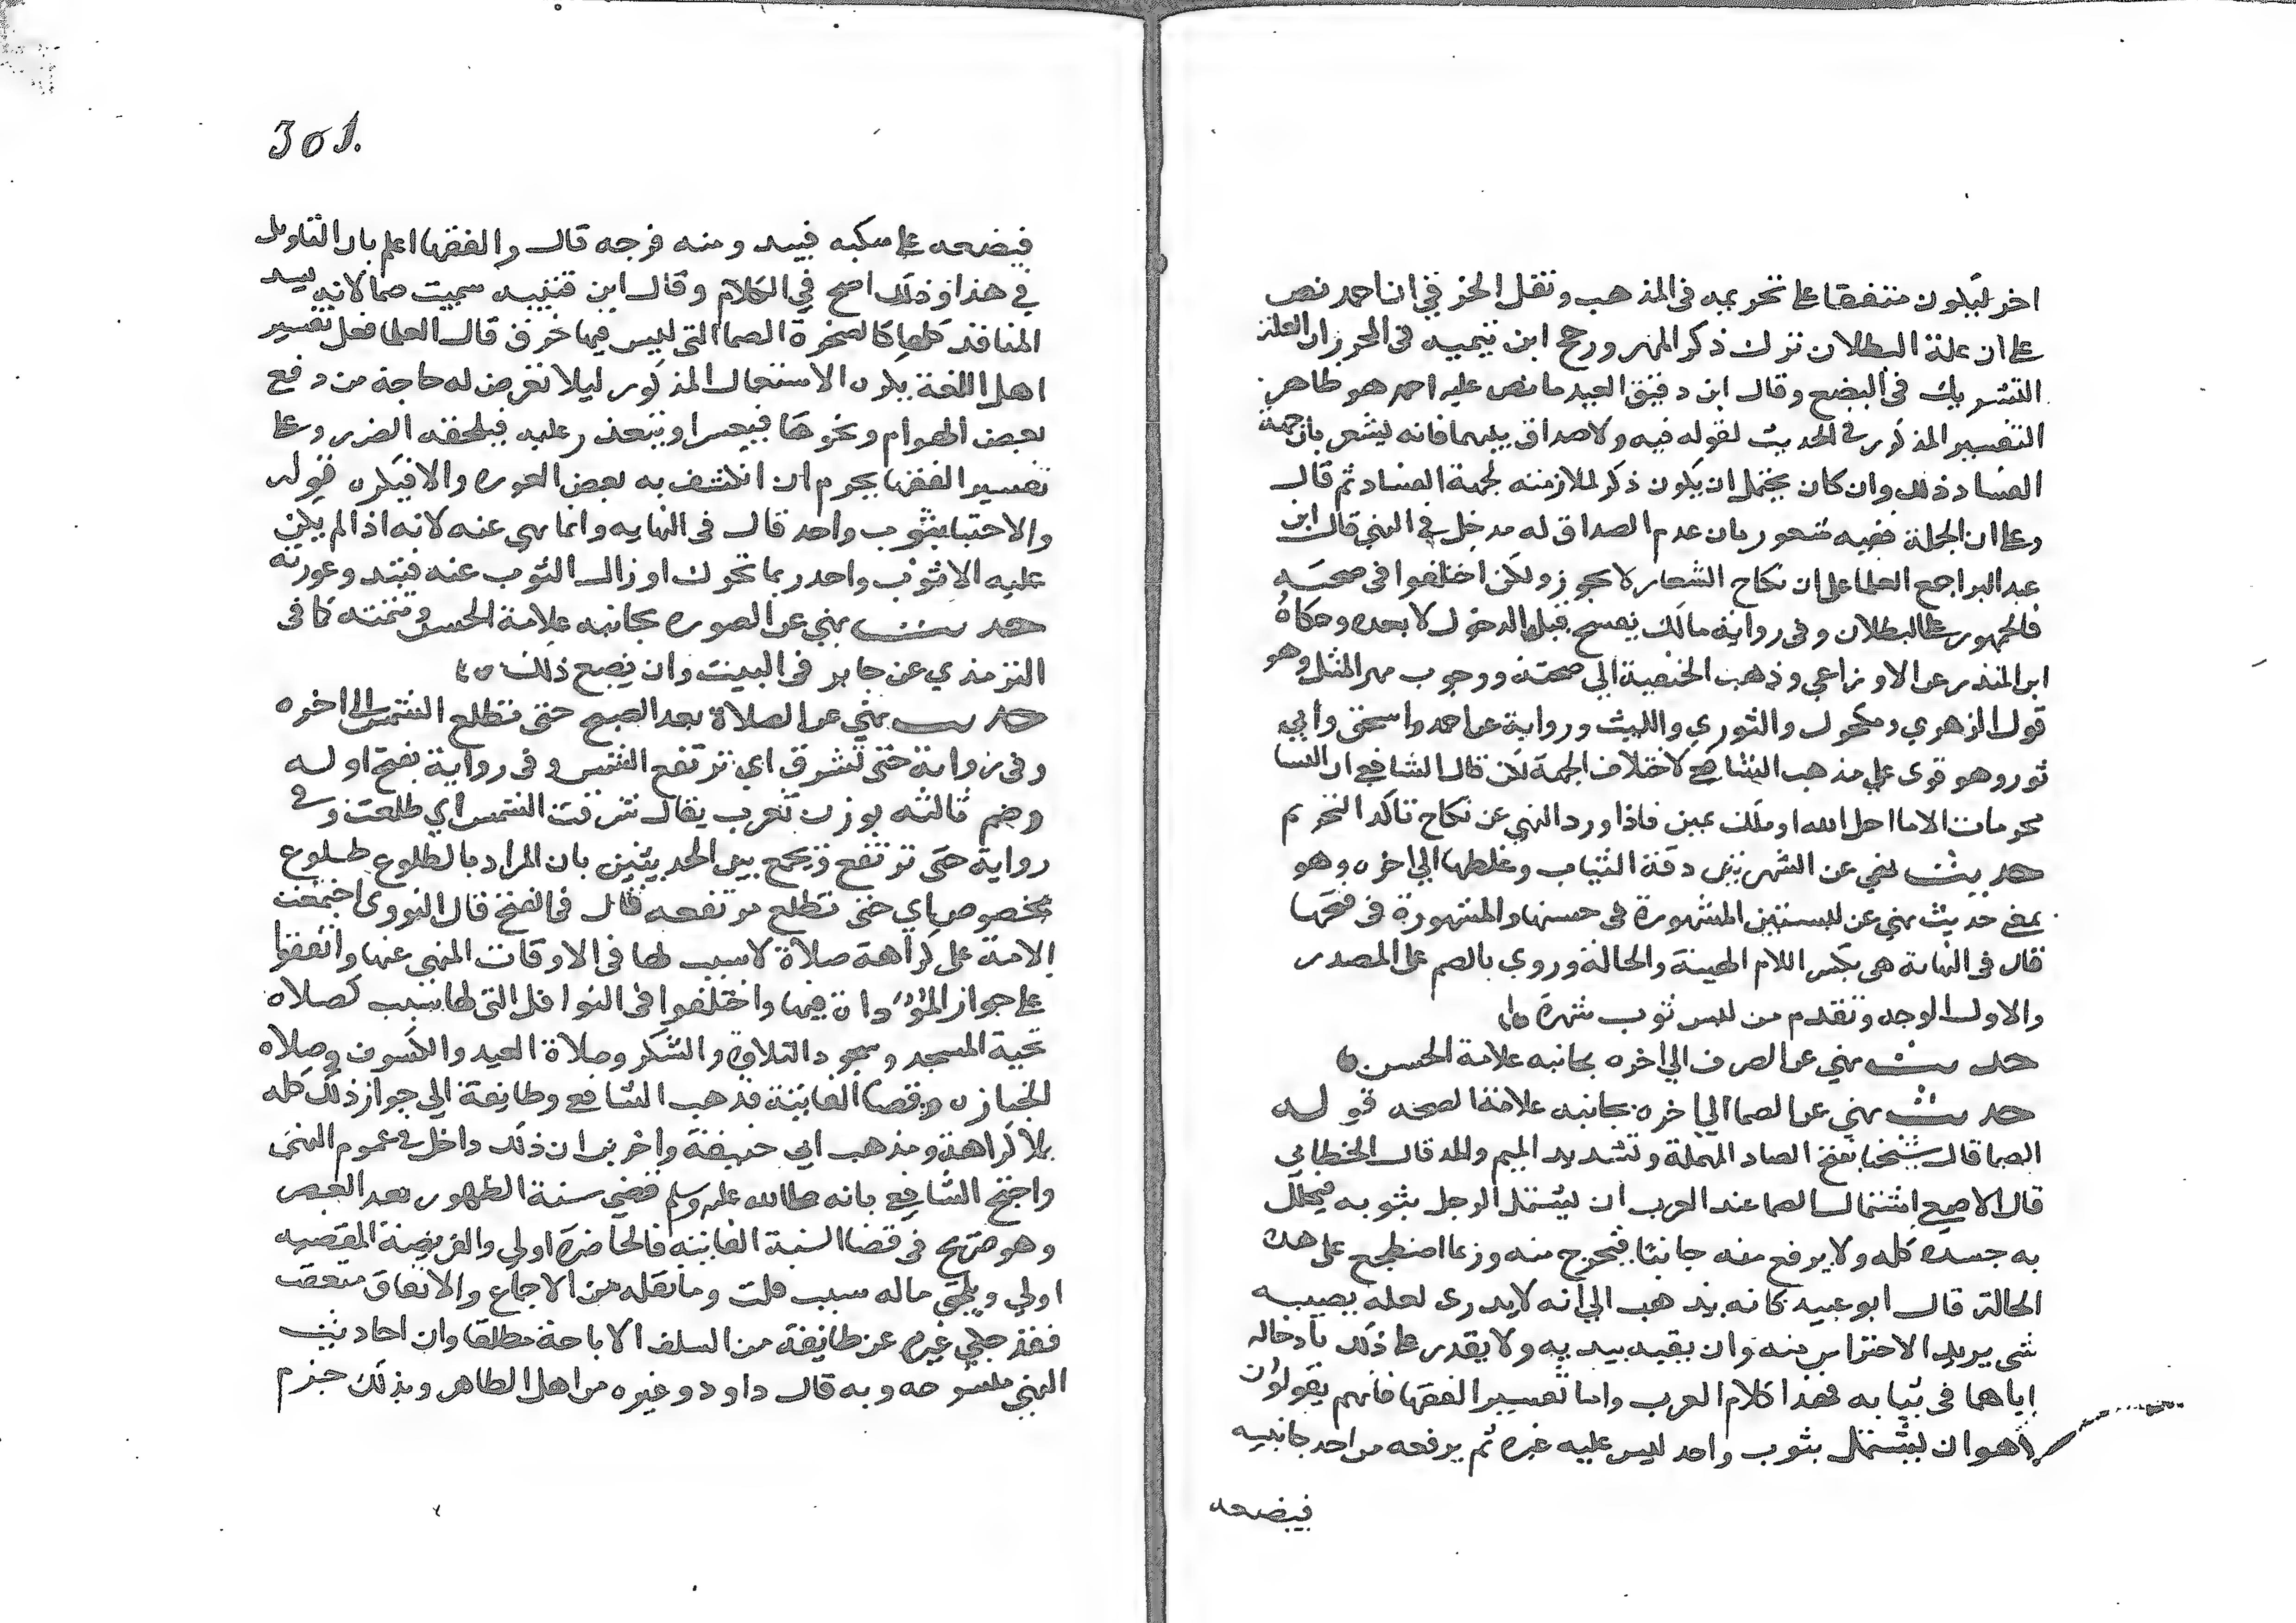 اخر ليكون متفقا على تحريمه في المذهب ونقل الخرقي ان احمد نص
على ان علة البطلان ترك ذكر المهر ورجح ابن تيميه في المحرر ان العلة
التشريك في البضع وقال ابن دقيق العيد ما نص عليه احمد هو ظاهر
التفسير المذكور في الحديث لقوله فيه ولا صداق بينهما فانه يشعر بان جهة
الفساد ذلك وان كان يحتمل ان يكون ذكر لملازمته لجهة الفساد ثم قال
وعلى الجملة ففيه شعور بان عدم الصداق له مدخل في النهي قال ابن
عبد البر اجمع العلما على ان نكاح الشغار لا يجوز ولكن اختلفوا في صحته
فالجمهور على البطلان وفي رواية مالك يفسخ قبل الدخول لا بعده وحكاه
ابن المنذر عن الاوزاعي وذهب الحنفية الي صحته ووجوب مهر المثل وهو
قول الزهري ومكحول والثوري والليث ورواية عن احمد واسحق وابي
ثور وهو قوي علي مذهب الشافعي لاختلاف الجهة لكن قال الشافعي ان النسا
محرمات الا ما احل الله او ملك يمين فاذا ورد النهي عن نكاح تاكد التحريم
حديث نهي عن الشهرتين دقة الثياب وغلظها الي اخره وهو
بمعنى حديث نهي عن اللبستين المشهورة في حسنها والمشهورة في قبحها
قال في النهاية هي بكسر اللام الهيئة والحالة وروي بالضم على المصدر
والاول الوجه وتقدم من لبس ثوب شهرة
حديث نهي عن الصرف الي اخره بجانبه علامة الحسن
حديث نهي عن الصما الي اخره بجانبه علامة الصحه قوله
الصما قال شيخنا بفتح الصاد المهملة وتشديد الميم والمد قال الخطابي
قال الاصمعي اشتمال الصما عند العرب ان يشتمل الرجل بثوبه فيجلل
به جسده كله ولا يرفع منه جانبا فيخرج منه وربما اضطجع على هذه
الحالة قال ابو عبيد كانه يذهب الي انه لا يدري لعله يصيبه
شي يريد الاحتراس منه وان يقيه بيديه ولا يقدر على ذلك بادخاله
اياهما في ثيابه فهذا كلام العرب واما تفسير الفقها فانهم يقولون
هو ان يشتمل بثوب واحد ليس عليه غيره ثم يرفعه من احد جانبيه
فيضعه
301.
فيضعه على منكبه فيبد ومنه فرجه قال والفقها اعلم بالتاويل
في هذا وذلك اصح في الكلام وقال ابن قتيبه سميت صما لانه يسد
المنافذ كلها كالصخرة الصما التي ليس فيها خرق قال العلما فعلى تفسير
اهل اللغة يكره الاستعمال المذكور ليلا تعرض له حاجة من دفع
بعض الهوام ونحوها فيعسر او يتعذر عليه فيلحقه الضرر وعلى
تفسير الفقها يحرم ان انكشف به بعض العوره والا فيكره قوله
والاحتبا بثوب واحد قال في النهايه وانما نهي عنه لانه اذا لم يكن
عليه الا ثوب واحد ربما تحرك او زال الثوب عنه فتبد وعورته
حديث نهي عن الصوره بجانبه علامة الحسن وتتمته كما في
الترمذي عن جابر في البيت وان يصنع ذلك
حديث نهي عن الصلاة بعد الصبح حتى تطلع الشمس الى اخره
وفي رواية حتى تشرق اي ترتفع الشمس وفي رواية بفتح اوله
وضم ثالثه بوزن تغرب يقال شرقت الشمس اي طلعت وفي
رواية حتى ترتفع ويجمع بين الحديثين بان المراد بالطلوع طلوع
مخصوص اي حتى تطلع مرتفعه قال في الفتح قال النووي اجتمعت
الامة على كراهة صلاة لا سبب لها في الاوقات المنهي عنها واتفقوا
على جواز المؤداة فيها واختلفوا في النوافل التي لها سبب كصلاه
تحية المسجد وسجود التلاوة والشكر وصلاة العيد والكسوف وصلاه
الجنازه وقضا الفايتة فذهب الشافعي وطايفة الي جواز ذلك كله
بلا كراهة ومذهب ابي حنيفة واخرين ان ذلك داخل في عموم النهي
واحتج الشافعي بانه صلى الله عليه وسلم قضى سنة الظهر بعد العصر
وهو صريح في قضا السنة الفايتة فالحاضرة اولي والفريضة المقضيه
اولي ويلحق ماله سبب قلت وما نقله من الاجماع والاتفاق متعقب
فقد حكي غيره عن طايفة من السلف الاباحة مطلقا وان احاديث
النهي منسوخه وبه قال داود وغيره من اهل الظاهر وبذلك جزم